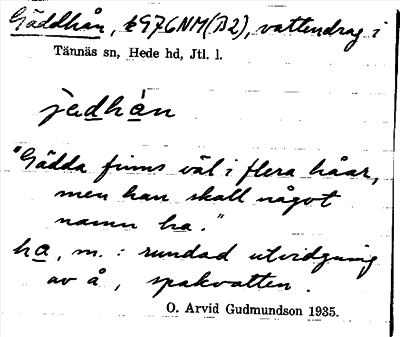 Gäddhån, 1976NM(B2), vattendrag i
Tännäs sn, Hede hd, Jtl. l.
jädhån
"Gädda finns väl i flera håar,
men han skall något
namn ha."
hå, m. : rundad utvidgning
av å, spakvatten.
O. Arvid Gudmundson 1935.